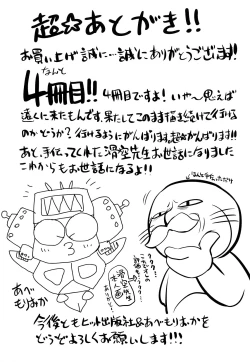 超☆あとがき!!
お買い上げ誠に…誠にありがとうございます!!
なんと
4冊目!! 4冊目ですよ! いや〜思えば
遠くに来たもんです。果たしてこのまま描き続けて行ける
のかどうか? 行けるようにがんばります。超☆がんばります!!
あと、手伝ってくれた滑空先生お世話になりました
これからもお世話になるよ!!
あべ
もりおか
滑空先生
今後ともヒット出版社&あべもりおかを
どうぞよろしくお願いします!!!